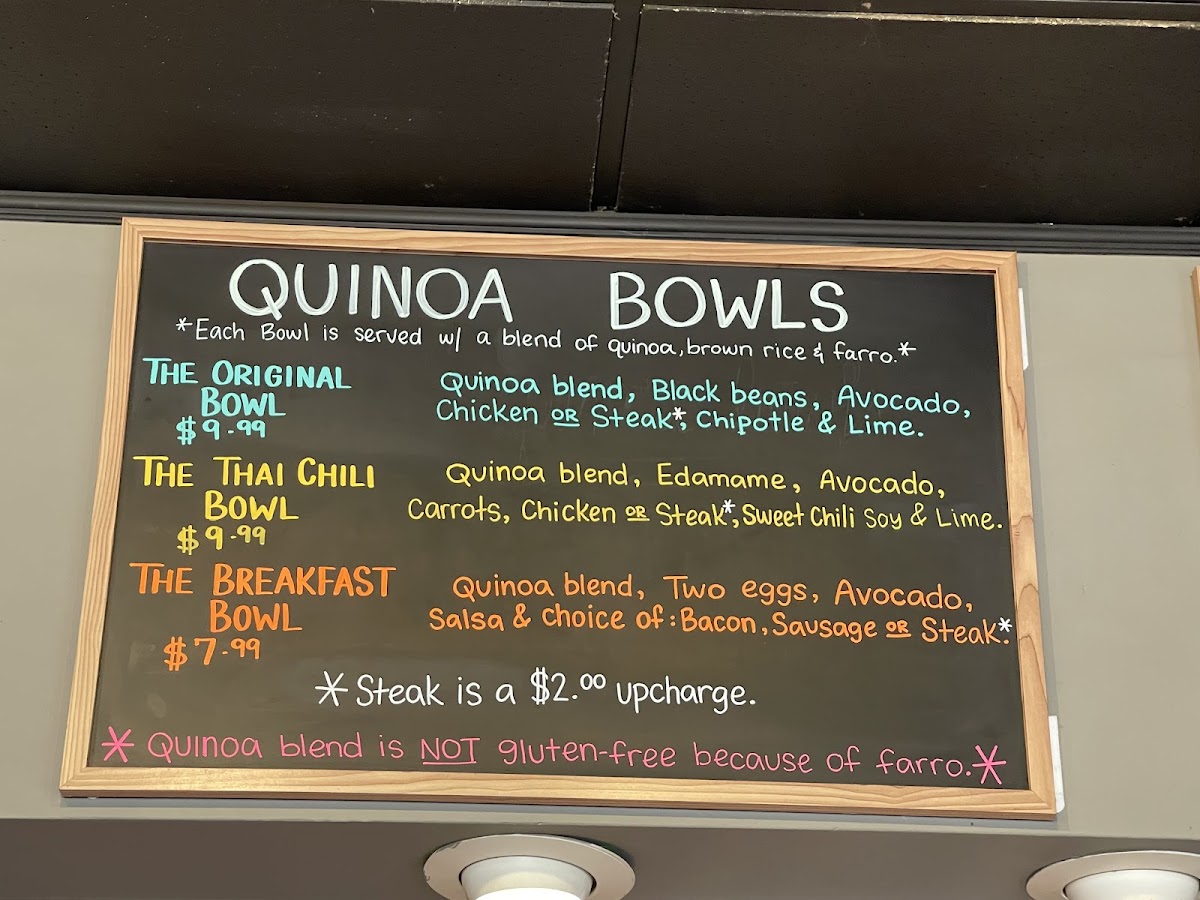 QUINOA BOWLS
*Each Bowl is served w/ a blend of quinoa, brown rice & farro.*
THE ORIGINAL
BOWL
$9.99
Quinoa blend, Black beans, Avocado,
Chicken OR Steak*, Chipotle & Lime.
THE THAI CHILI
BOWL
$9.99
Quinoa blend, Edamame, Avocado,
Carrots, Chicken OR Steak*, Sweet Chili Soy & Lime.
THE BREAKFAST
BOWL
$7.99
Quinoa blend, Two eggs, Avocado,
Salsa & choice of: Bacon, Sausage OR Steak*.
*Steak is a $2.00 upcharge.
*Quinoa blend is NOT gluten-free because of farro.*